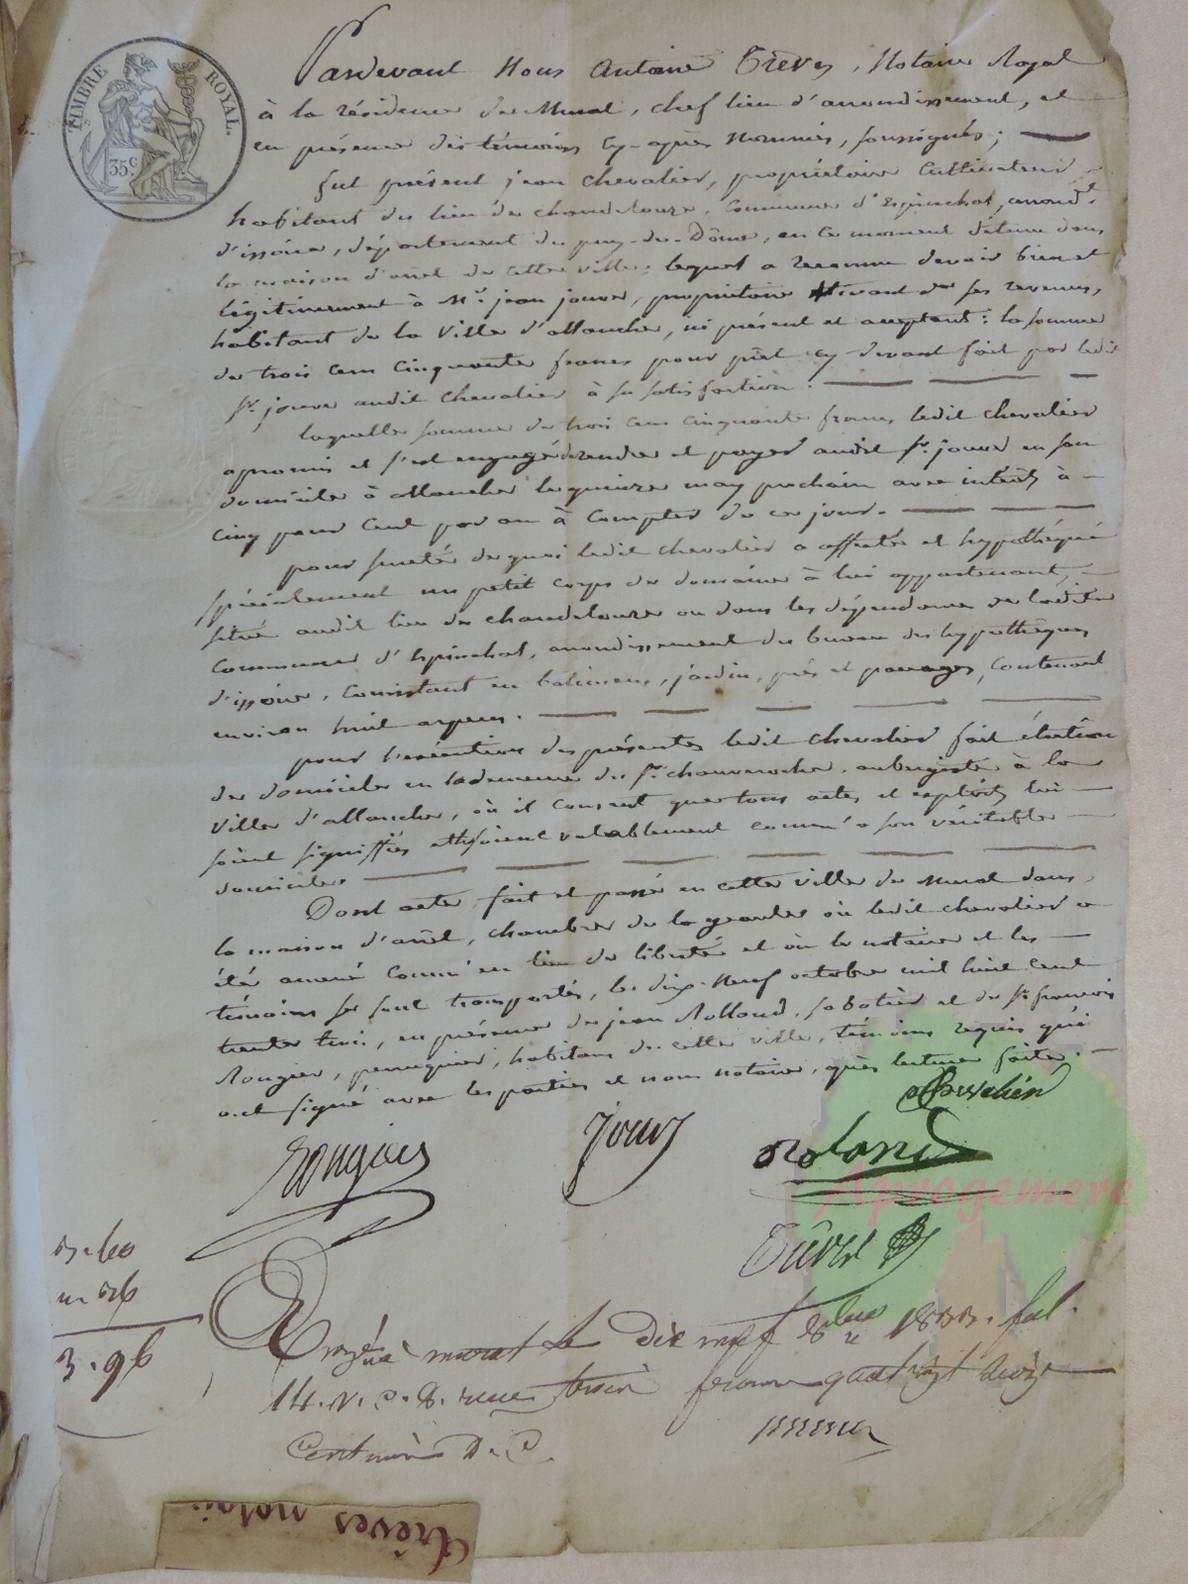 TIMBRE ROYAL.
35c
Pardevant Nous Antoine Trèves, Notaire Royal
à la résidence de Murat, chef lieu d'arrondissement, et
en présence des témoins cy-après nommés, soussignés;
fut présent jean chevalier, propriétaire cultivateur
habitant du lieu de chandelouze, commune d'Espinchal, arrond.t
d'issoire, département du puy-de-Dôme, en ce moment détenu dans
la maison d'arrêt de cette ville; lequel a reconnu devoir bien et
légitimement à Mr. jean jouve, propriétaire vivant de ses revenus,
habitant de la Ville d'allanche, ici présent et acceptant: la somme
de trois cens cinquante francs pour prêt cy-devant fait par ledit
Sr. jouve audit chevalier à sa satisfaction.
laquelle somme de trois cens cinquante francs, ledit chevalier
a promis et s'est engagé de rendre et payer audit Sr. jouve en son
domicile à allanche le quinze may prochain avec intérêts à
cinq pour cent par an à compter de ce jour.
pour sureté de quoi ledit chevalier a affecté et hypothéqué
spécialement un petit corps de domaine à lui appartenant,
situé audit lieu de chandelouze ou dans les dépendances de ladite
commune d'Espinchal, arrondissement du bureau des hypothèques
d'issoire, consistant en batimens, jardin, prés et pacages, contenant
environ huit arpens.
pour l'exécution des présentes ledit chevalier fait élection
de domicile en la demeure du Sr. chauveroche, aubergiste à la
Ville d'allanche, où il consent que tous actes et exploits lui
soient signiffiés et
valablement comm'a son véritable
domicile.
Dont acte, fait et passé en cette ville de Murat dans
la maison d'arrêt, chambre de la geaule où ledit chevalier a
été amené comm'en lieu de liberté et où le notaire et les
témoins se sont transportés, le dix-neuf octobre mil huit cent
trente trois, en présence de jean Rolland, sabotier et du Sr. françois
Rougier, perruquier, habitans de cette ville, témoins requis qui
ont signé avec les parties et nous notaire, après lecture faite.
chevalier
Rougier
jouve
Roland
Trèves
3.96
Enregé à murat le Dix neuf 8bre 1833. fol.
14. v. c. 8. reçu trois francs quatre vingt seize
Centimes D. C.
Trèves notaire
Aprogemere